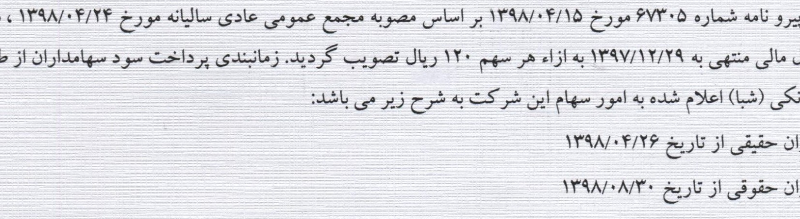 پیرو نامه شماره ۶۷۳۰۵ مورخ ۱۳۹۸/۰۴/۱۵ بر اساس مصوبه مجمع عمومی عادی سالیانه مورخ ۱۳۹۸/۰۴/۲۴ ،
مالی منتهی به ۱۳۹۷/۱۲/۲۹ به ازاء هر سهم ۱۲۰ ریال تصویب گردید. زمانبندی پرداخت سود سهامداران از
(شبا) اعلام شده به امور سهام این شرکت به شرح زیر می باشد:
حقیقی از تاریخ ۱۳۹۸/۰۴/۲۶
حقوقی از تاریخ ۱۳۹۸/۰۸/۳۰